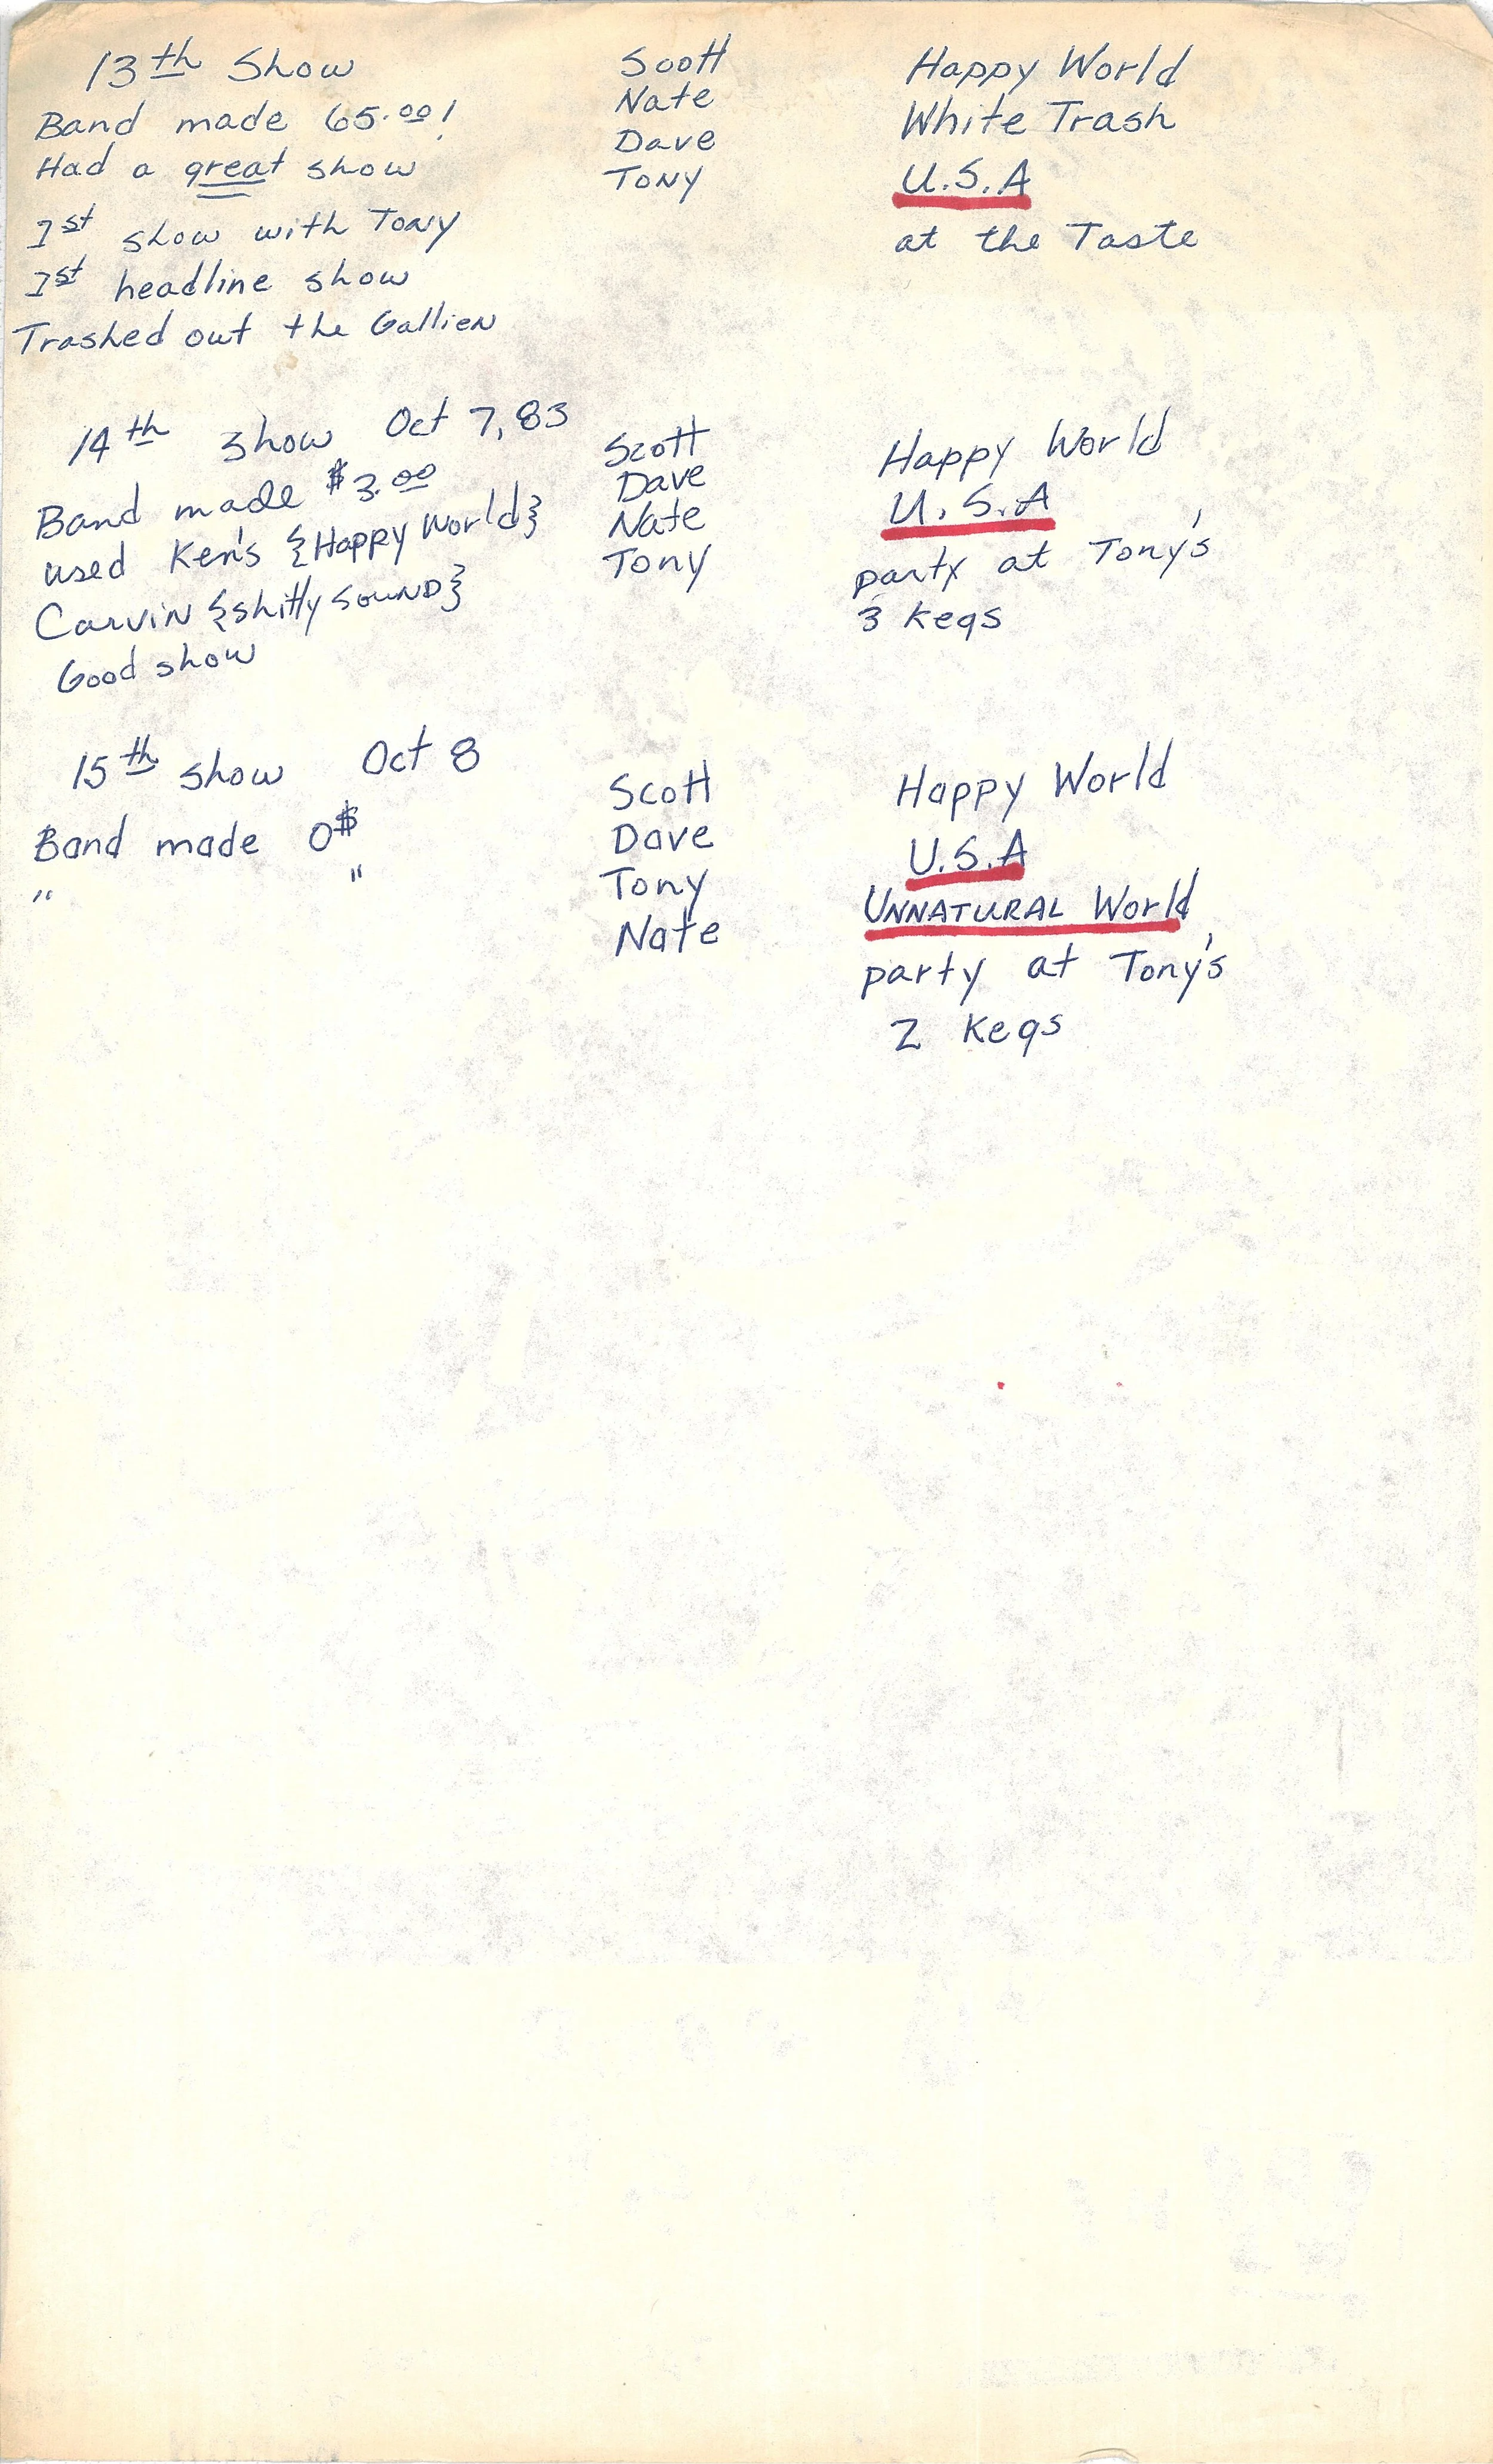 13th Show
Band made 65.00!
Had a great show
1st show with Tony
1st headline show
Trashed out the Gallien
Scott
Nate
Dave
Tony
Happy World
White Trash
U.S.A
at the Taste
14th show Oct 7, 83
Band made $3.00
used Ken's {Happy World}
Carvin {shitty SOUND}
Good show
Scott
Dave
Nate
Tony
Happy World
U.S.A
party at Tony's
3 Kegs
15th show Oct 8
Band made 0$
" "
Scott
Dave
Tony
Nate
Happy World
U.S.A
UNNATURAL World
party at Tony's
2 Kegs